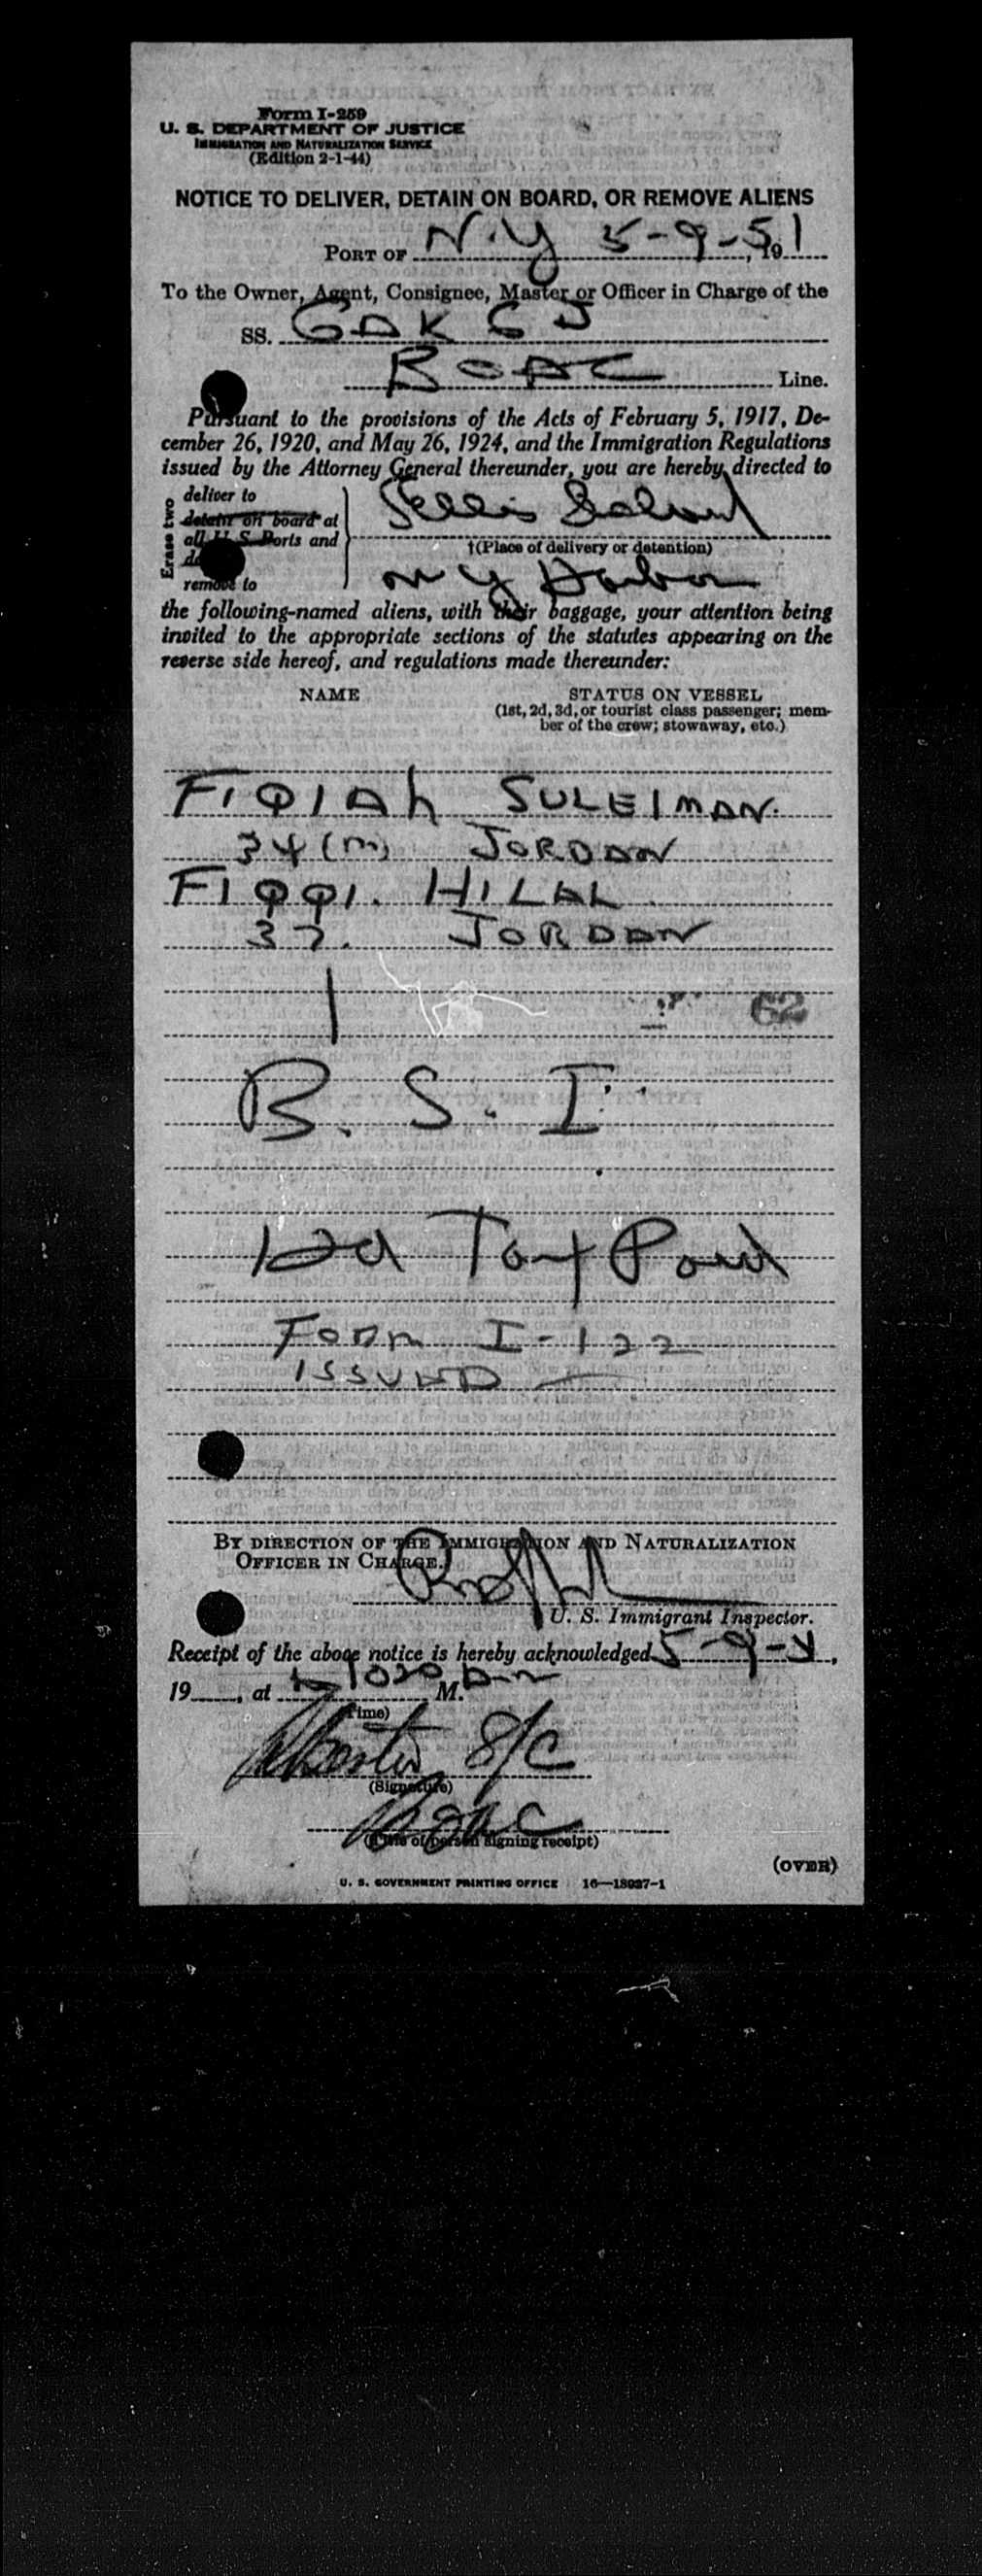 Form I-259
U. S. DEPARTMENT OF JUSTICE
IMMIGRATION AND NATURALIZATION SERVICE
(Edition 2-1-44)
NOTICE TO DELIVER, DETAIN ON BOARD, OR REMOVE ALIENS
PORT OF N.Y 5-9-51, 19
To the Owner, Agent, Consignee, Master or Officer in Charge of the
SS. GAKGJ
BOAC Line.
Pursuant to the provisions of the Acts of February 5, 1917, De-
cember 26, 1920, and May 26, 1924, and the Immigration Regulations
issued by the Attorney General thereunder, you are hereby directed to
Erase two
deliver to
detain on board at
all U. S. Ports and
remove to
Ellis Island
†(Place of delivery or detention)
N Y Harbor
the following-named aliens, with their baggage, your attention being
invited to the appropriate sections of the statutes appearing on the
reverse side hereof, and regulations made thereunder:
NAME STATUS ON VESSEL
(1st, 2d, 3d, or tourist class passenger; mem-
ber of the crew; stowaway, etc.)
FIQIAh SULEIMAN.
34 (m) JORDAN
FIQQI. HILAL
37. JORDAN
62
B. S. I.
Tax Paid
FORM I-122
ISSUED
BY DIRECTION OF THE IMMIGRATION AND NATURALIZATION
OFFICER IN CHARGE.
U. S. Immigrant Inspector.
Receipt of the above notice is hereby acknowledged 5-9-51,
19, at 1030 M.
(Time)
S/C
(Signature)
BOAC
(Title of person signing receipt)
(OVER)
U. S. GOVERNMENT PRINTING OFFICE 16—18027-1